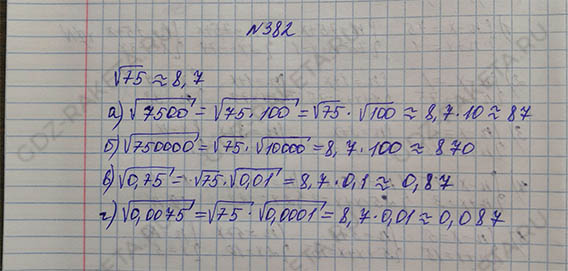 N382
√75 ≈ 8,7
а) √7500 = √75·100 = √75 · √100 ≈ 8,7·10 ≈ 87
б) √750000 = √75 · √10000 = 8,7·100 ≈ 870
в) √0,75 = √75·√0,01 = 8,7·0,1 ≈ 0,87
г) √0,0075 = √75 · √0,0001 = 8,7·0,01 ≈ 0,087
GDZ-RAKETA.RU